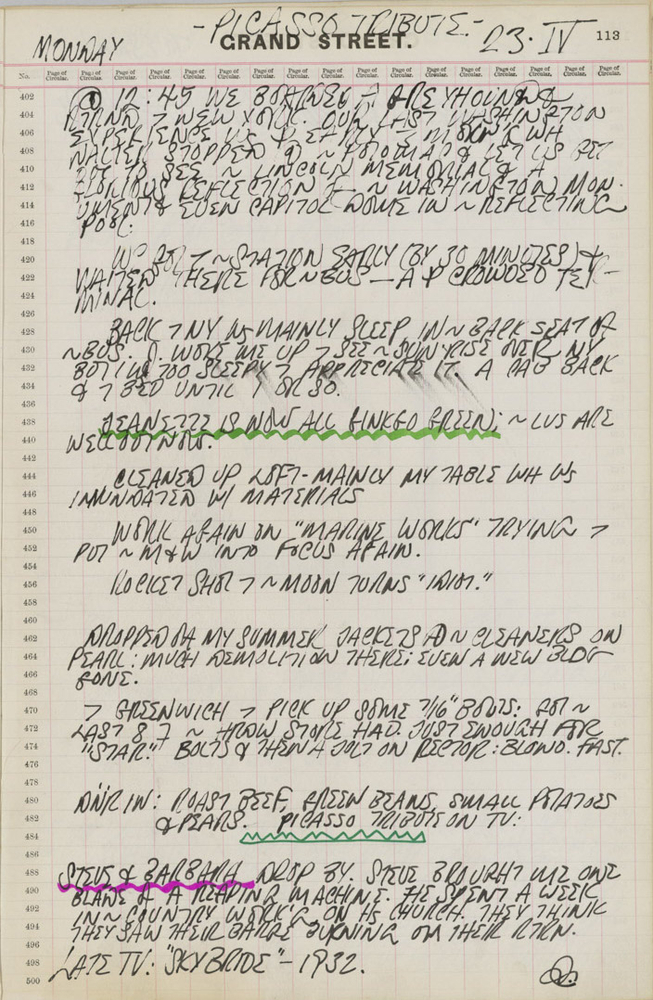 -PICASSO TRIBUTE.-
MONDAY GRAND STREET. 23·IV 113
No. Page of Circular. Page of Circular. Page of Circular. Page of Circular. Page of Circular. Page of Circular. Page of Circular. Page of Circular. Page of Circular. Page of Circular. Page of Circular. Page of Circular. Page of Circular. Page of Circular. Page of Circular. Page of Circular. Page of Circular.
402 @ 12:45 WE BOARDED A GREYHOUND &
404 RTRND 7 NEW YORK. OUR LAST WASHINGTON
406 EXPERIENCE WS
408 WALTER STOPPED @ ~ POTOMAC & LET US GET
410 OUT TO SEE ~ LINCOLN MEMORIAL & A
412 GLORIOUS REFLECTION ~ WASHINGTON MON-
414 UMENT & EVEN CAPITOL DOME IN ~ REFLECTING
416 POOL.
418
420 WE GOT 7 ~ STATION EARLY (BY 30 MINUTES) &
422 WAITED THERE FOR ~ BUS — A CROWDED TER-
424 MINAL.
426
428 BACK 7 NY WS MAINLY SLEEP IN ~ BACK SEAT OF
430 ~ BUS. J. WOKE ME UP 7 SEE ~ SUNRISE OVER NY
432 BUT I WS TOO SLEEPY 7 APPRECIATE IT. A CAB BACK
434 & 7 BED UNTIL 1 OR SO.
436
438 JEANETTE IS NOW ALL GINKGO GREEN; ~ LVS ARE
440 WELL OUT NOW.
442
444 CLEANED UP LOFT-MAINLY MY TABLE WH WS
446 INNUNDATED W/ MATERIALS
448
450 WORK AGAIN ON "MARINE WORKS" TRYING 7
452 PUT ~ M&W INTO FOCUS AGAIN.
454
456 ROCKET SHOT 7 ~ MOON TURNS "IDIOT."
458
460
462 DROPPED OFF MY SUMMER JACKETS @ ~ CLEANERS ON
464 PEARL: MUCH DEMOLITION THERE; EVEN A NEW BLDG
466 GONE.
468
470 7 GREENWICH 7 PICK UP SOME 7/16" BOLTS: GOT ~
472 LAST 8 7 ~ HRDW STORE HAD. JUST ENOUGH FOR
474 "STAR." BOLTS & THEN A JOLT ON RECTOR: BLOWD. FAST.
476
478
480 DINR IN: ROAST BEEF, GREEN BEANS, SMALL POTATOES
482 & PEARS. PICASSO TRIBUTE ON TV:
484
486
488 STEVE & BARBARA DROP BY. STEVE BROUGHT ME ONE
490 BLADE OF A REAPING MACHINE. HE SPENT A WEEK
492 IN ~ COUNTRY WORK'G ON HS CHURCH. THEY THINK
494 THEY SAW THEIR BARGE BURNING ON THEIR RTRN.
496
498 LATE TV: "SKY BRIDE" – 1932.
500